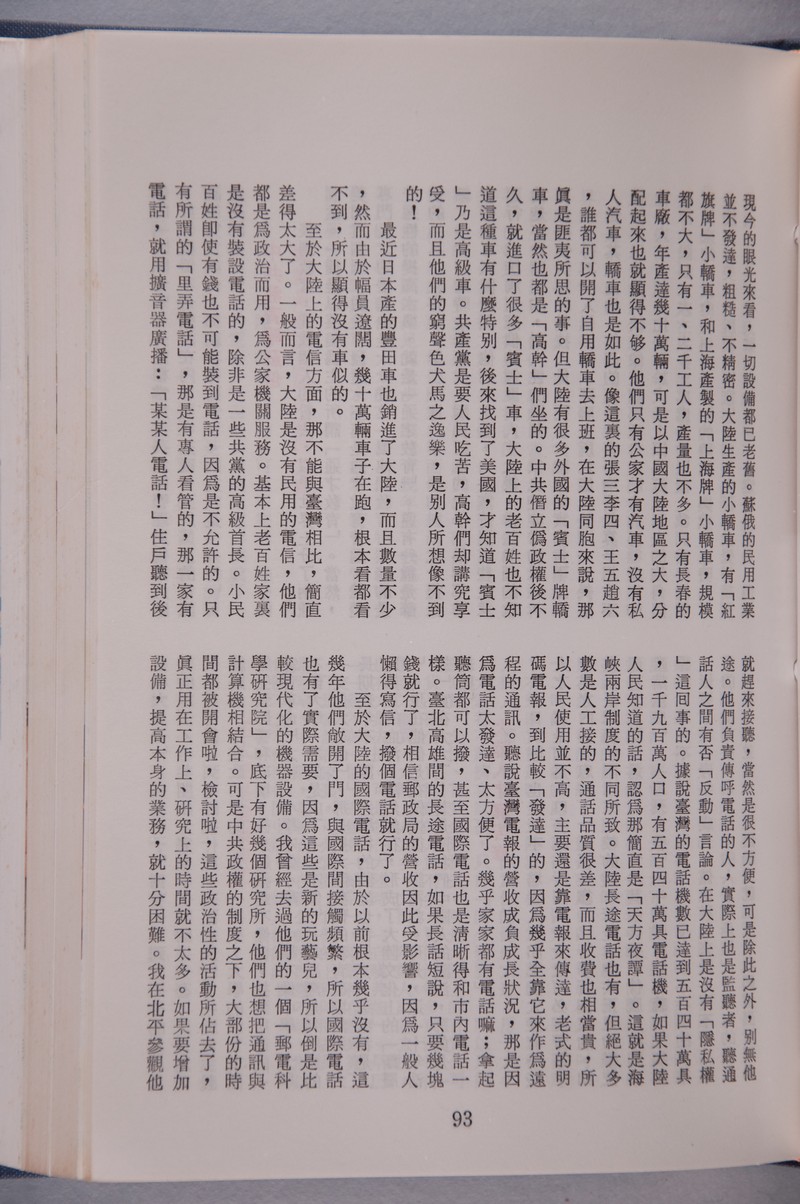 現今的眼光來看，一切設備都已老舊。蘇俄的民用工業
並不發達，粗糙、不精密。大陸生產的小轎車，有「紅
旗牌」小轎車，和上海產製的「上海牌」小轎車，規模
都不大，只有一、二千工人，產量也不多。只有長春的
車廠，年產達幾十萬輛，可是以中國大陸地區之大，分
配起來也就顯得不够。他們只有公家才有汽車，沒有私
人汽車，轎車也是如此。像這裏的張三李四、王五趙六
，誰都可以開了自用轎車去上班，在大陸同胞來說，那
眞是匪夷所思的事。但大陸有很多外國的「賓士」牌轎
車，當然也都是「高幹」們坐的。中共僭立僞政權後不
久，就進口了很多「賓士」車，大陸上的老百姓也不知
道這種車有什麼特别，後來找到了美國，才知道「賓士
」乃是高級車。共產黨是要人民吃苦，高幹們却講究享
受，而且他們的窮聲色犬馬之逸樂，是别人所想像不到
的！
最近日本產的豐田車也銷進了大陸，而且數量不少
，然而由於幅員遼闊，幾十萬輛車子在跑，根本看都看
不到，所以顯得沒有車似的。
至於大陸上的電信方面，那不能與臺灣相比，簡直
差得太大了。一般而言，大陸是沒有民用的電信，他們
都是爲政治而用，爲公家機關服務。基本上老百姓家裏
是沒有裝設電話的，除非是一些共黨的高級首長。小民
百姓卽使有錢也不可能裝到電話，因爲是不允許的。只
有所謂的「里弄電話」，那是有專人看管的，那一家有
電話，就用擴音器廣播：「某某人電話！」住戶聽到後
就趕來接聽，當然是很不方便，可是除此之外，别無他
途。他們負責傳呼電話的人，實際上也是監聽者，聽通
話人之間有否「反動」言論。在大陸上是沒有「隱私權
」這回事的。據說臺灣的電話機數已達到五百四十萬具
，一千九百萬人口，有五百四十萬具電話機，如果大陸
人民知道的話，認爲那簡直是「天方夜譚」。這就是海
峽兩岸制度的不同所致。大陸長途電話也有，但絕大多
數是人工接的，通話品質很差，而且收費也相當貴，所
以人民使用並不高，主要還是靠電報來傳達，老式的明
碼電報，到比較「發達」的，因爲幾乎全靠它來作爲遠
程的通訊。聽說臺灣電報的營收成負成長狀況，那是因
爲電話太發達、太方便了。幾乎家家都有電話嘛；拿起
聽筒都可以撥，甚至國際電話也是淸晰得和市內電話一
樣。臺北高雄間的長途電話，如果長話短說，只要幾塊
錢就行了，相信郵政局的營收因此受影響，因爲一般人
懶得寫信，撥個電話就行了。
至於大陸的國際電話，由於以前根本幾乎沒有，這
幾年他們敞開了門，與國際間接觸頻繁，所以國際電話
也有了實際需要，因爲這些是新的玩藝兒，所以倒是比
較現代化的機器設備。我曾經去過他們的一個「郵電科
學研究院」，底下有好幾個研究所，他們也想把通訊與
計算機相結合。可是中共政權的制度之下，大部份的時
間都被開會啦，檢討啦，這些政治性的活動所佔去了，
眞正用在工作上、研究上的時間就不太多。如果要增加
設備，提高本身的業務，就十分困難。我在北平參觀他
93